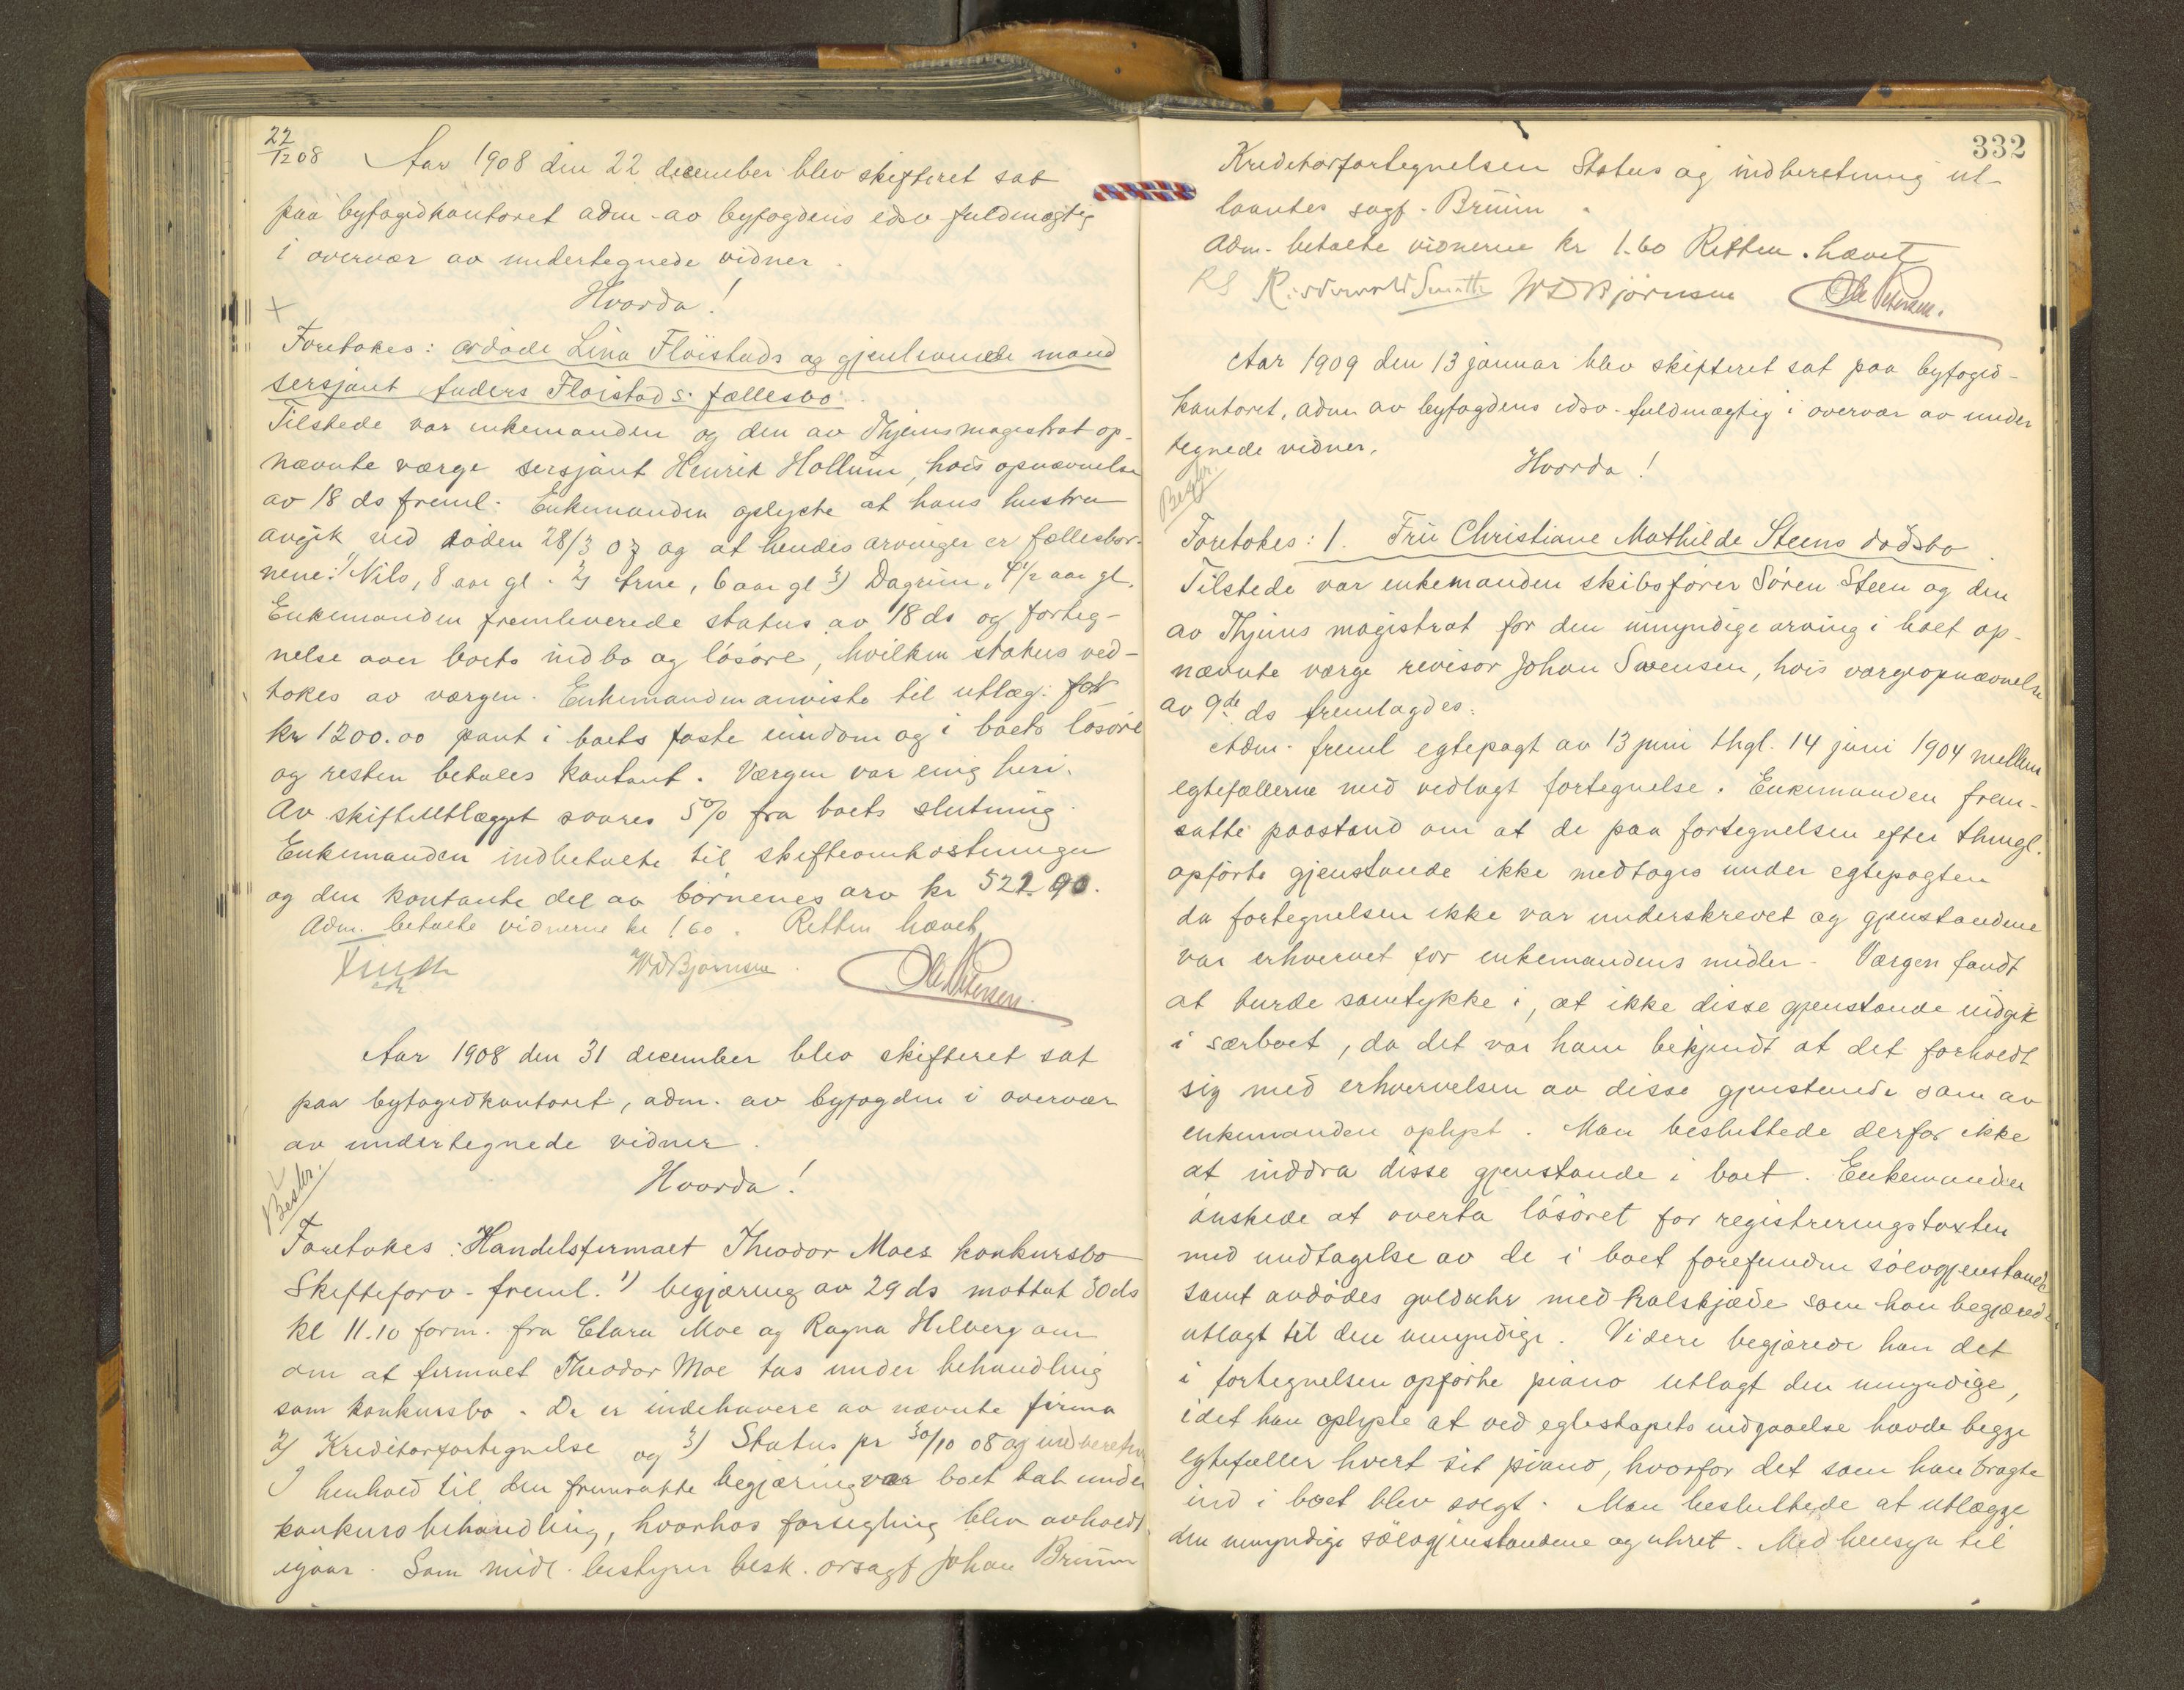 22/12 08 Aar 1908 den 22 december blev skifteret sat
paa byfogdkontoret adm. av byfogdens edsv. fuldmægtig
i overvær av undertegnede vidner.
Hvorda!
Foretokes: avdøde Lina Fløistads og gjenlevende mand
sersjant Anders Fløistads fællesbo.
Tilstede var enkemanden og den av Thjems magistrat op-
nævnte værge sersjant Henrik Hollum, hvis opnævnelse
av 18 ds freml. Enkemanden oplyste at hans hustru
avgik ved døden 28/3 07 og at hendes arvinger er fællesbør-
nene: 1) Nils, 8 aar gl. 2) Arne, 6 aar gl 3) Dagrun, 4 1/2 aar gl.
Enkemanden fremleverede status av 18 ds og forteg-
nelse over boets indbo og løsøre, hvilken status ved-
tokes av værgen. Enkemanden anviste til utlæg: for
kr 1200.00 pant i boets faste eiendom og i boets løsøre
og resten betales kontant. Værgen var enig heri.
Av skifteutlægget svares 5% fra boets slutning.
Enkemanden indbetalte til skifteomkostninger
og den kontante del av børnenes arv kr 521.90.
Adm. betalte vidnerne kr 1.60. Retten hævet
Finch WD Bjørnsen Ole Petersen.
Aar 1908 den 31 december blev skifteret sat
paa byfogdkontoret, adm. av byfogden i overvær
av undertegnede vidner.
Hvorda!
Beslr.
Foretokes: Handelsfirmaet Theodor Moes konkursbo
Skifteforv. freml. 1) begjæring av 29 ds mottat 30 ds
kl 11.10 form. fra Clara Moe og Ragna Helberg om
om at firmaet Theodor Moe tas under behandling
som konkursbo. De er indehavere av nævnte firma
2) Kreditorfortegnelse og 3) Status pr 30/10 08 og indberetn
I henhold til den fremsatte begjæring var boet tat under
konkursbehandling, hvorhos forsegling blev avholdt
igaar. Som midl. bestyrer besk. orsagf Johan Bruun
332
Kreditorfortegnelsen Status og indberetning ut-
laantes sagf. Bruun.
Adm. betalte vidnerne kr 1.60 Retten hævet
RS Ridderwold Smith WD Bjørnsen Ole Petersen.
Aar 1909 den 13 januar blev skifteret sat paa byfogd-
kontoret, adm av byfogdens edsv. fuldmægtig i overvær av under
tegnede vidner.
Hvorda!
Beslr.
Foretokes: 1. Fru Christiane Mathilde Steens dødsbo
Tilstede var enkemanden skibsfører Søren Steen og den
av Thjems magistrat for den umyndige arving i boet op-
nævnte værge revisor Johan Svensen, hvis værgeopnævnelse
av 9de ds fremlagdes.
Adm. freml egtepagt av 13 juni thgl. 14 juni 1904 mellem
egtefællerne med vedlagt fortegnelse. Enkemanden frem-
satte paastand om at de paa fortegnelsen efter thingl.
opførte gjenstande ikke medtages under egtepagten
da fortegnelsen ikke var underskrevet og gjenstandene
var erhvervet for enkemandens midler. Værgen fandt
at burde samtykke i, at ikke disse gjenstande indgik
i særboet, da det var ham bekjendt at det forholdt
sig med erhvervelsen av disse gjenstande som av
enkemanden oplyst. Man besluttede derfor ikke
at inddra disse gjenstande i boet. Enkemanden
ønskede at overta løsøret for registreringstaksten
med undtagelse av de i boet forefundne sølvgjenstande
samt avdødes guldeuhr med halskjæde som han begjæred
utlagt til den umyndige. Videre begjærede han det
i fortegnelsen opførte piano utlagt den umyndige,
idet han oplyste at ved egteskapets indgaaelse havde begge
egtefæller hvert sit piano, hvorfor det som han bragte
ind i boet blev solgt. Man besluttede at utlægge
den umyndige sølvgjenstandene og uhret. Med hensyn til